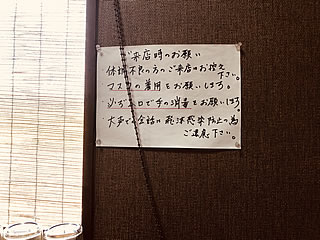 ご来店時のお願い
体調不良の方のご来店はお控え
下さい。
マスクの着用をお願いします。
必ず入口で手の消毒をお願いします。
大声での会話は飛沫感染防止の為
ご遠慮下さい。